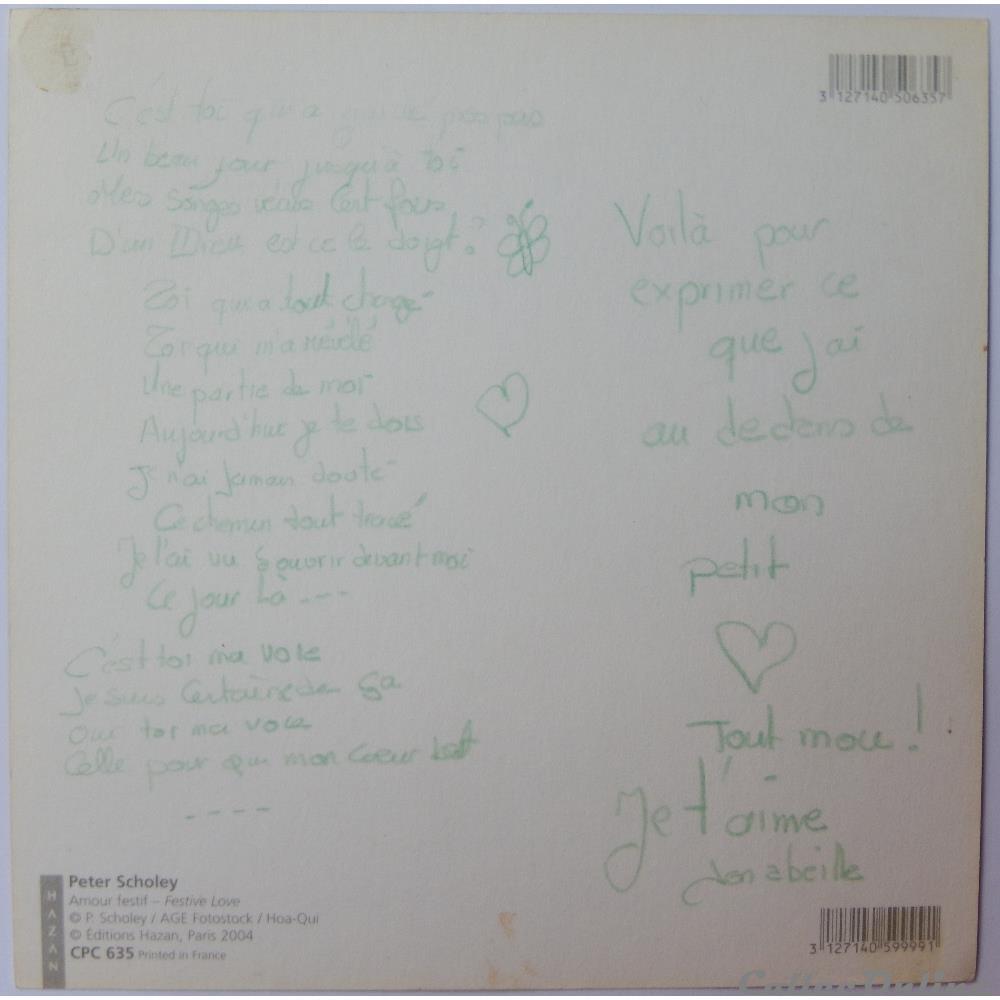 3 127140 506357
C'est toi qui a guidé mes pas
Un beau jour jusqu'à toi
Mes songes
D'un Dieu est ce le doigt ?
Toi qui a tout changé
Toi qui m'a révélé
Une partie de moi
Aujourd'hui je te dois
Je n'ai jamais douté
Ce chemin tout tracé
Je l'ai vu s'ouvrir devant moi
Ce jour là ---
C'est toi ma voie
Je suis certaine de ça
Oui toi ma voie
Celle pour qui mon coeur bat
----
Voilà pour
exprimer ce
que j'ai
au dedans de
mon
petit
Tout mou !
Je t'aime
Ton abeille
HAZAN
Peter Scholey
Amour festif – Festive Love
© P. Scholey / AGE Fotostock / Hoa-Qui
© Éditions Hazan, Paris 2004
CPC 635 Printed in France
3 127140 599991